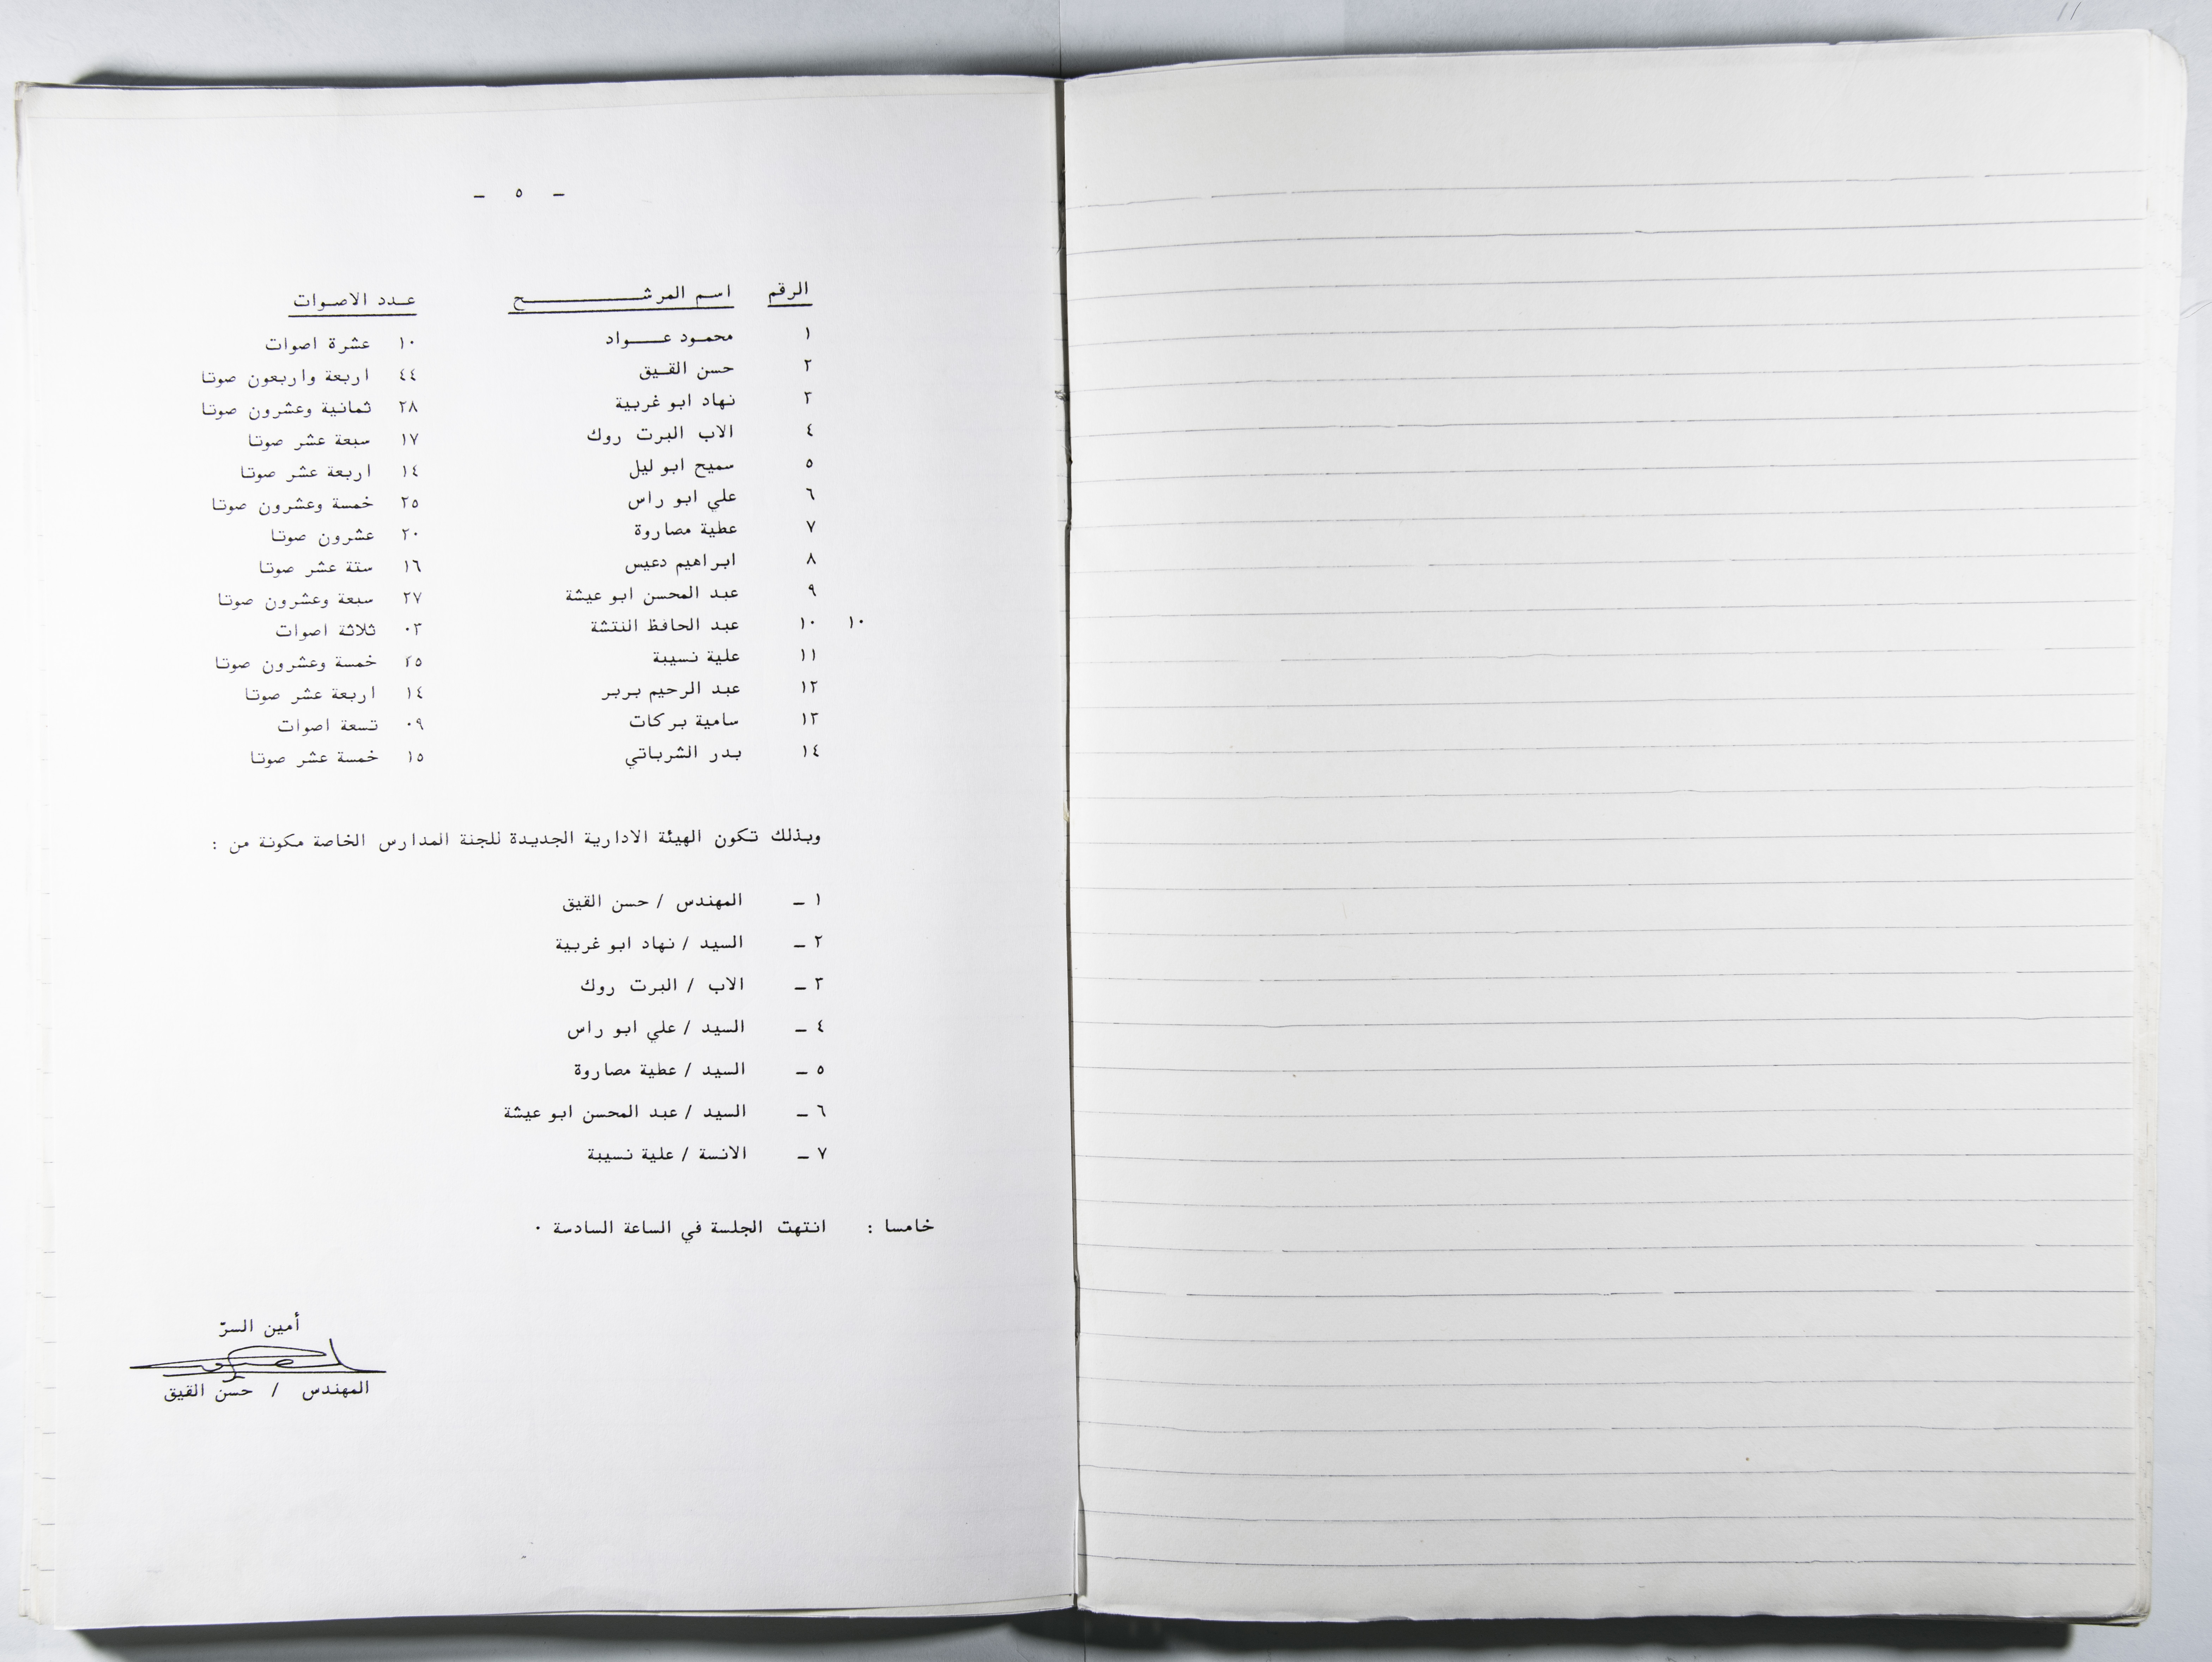 - ٥ -
الرقم اسم المرشح عدد الاصوات
١ محمود عواد ١٠ عشرة اصوات
٢ حسن القيق ٤٤ اربعة واربعون صوتا
٣ نهاد ابو غربية ٢٨ ثمانية وعشرون صوتا
٤ الاب البرت روك ١٧ سبعة عشر صوتا
٥ سميح ابو ليل ١٤ اربعة عشر صوتا
٦ علي ابو راس ٢٥ خمسة وعشرون صوتا
٧ عطية مصاروة ٢٠ عشرون صوتا
٨ ابراهيم دعيس ١٦ ستة عشر صوتا
٩ عبد المحسن ابو عيشة ٢٧ سبعة وعشرون صوتا
١٠ ١٠ عبد الحافظ النتشة ٠٣ ثلاثة اصوات
١١ علية نسيبة ٢٥ خمسة وعشرون صوتا
١٢ عبد الرحيم بربر ١٤ اربعة عشر صوتا
١٣ سامية بركات ٠٩ تسعة اصوات
١٤ بدر الشرباتي ١٥ خمسة عشر صوتا
وبذلك تكون الهيئة الادارية الجديدة للجنة المدارس الخاصة مكونة من :
١ - المهندس / حسن القيق
٢ - السيد / نهاد ابو غربية
٣ - الاب / البرت روك
٤ - السيد / علي ابو راس
٥ - السيد / عطية مصاروة
٦ - السيد / عبد المحسن ابو عيشة
٧ - الانسة / علية نسيبة
خامسا : انتهت الجلسة في الساعة السادسة ٠
أمين السرّ
المهندس / حسن القيق